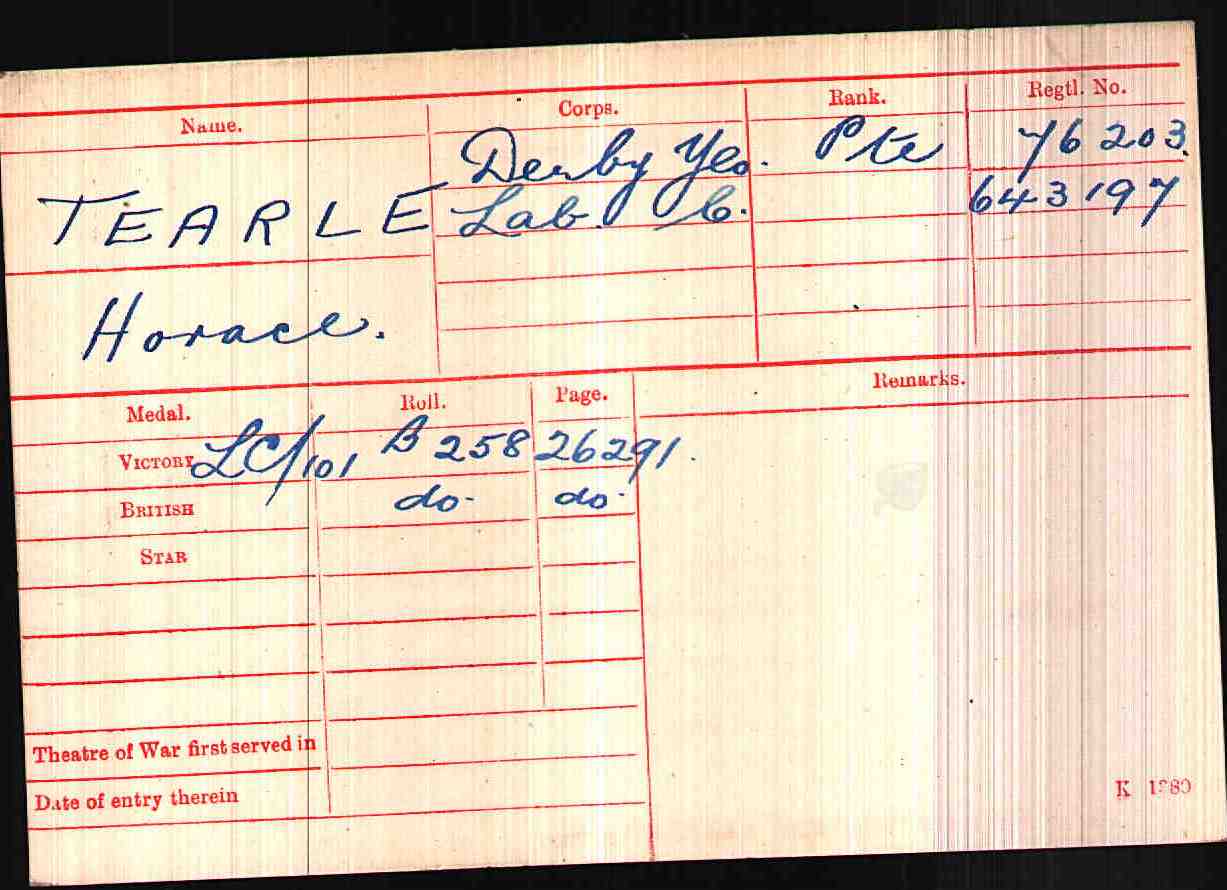 Name. Corps. Rank. Regtl. No.
Derby Yeo. Pte 76203.
TEARLE Lab. C. 643197
Horace.
Medal. Roll. Page. Remarks.
VICTORY LC/101 B 258 26291.
BRITISH do. do.
STAR
Theatre of War first served in
Date of entry therein
K